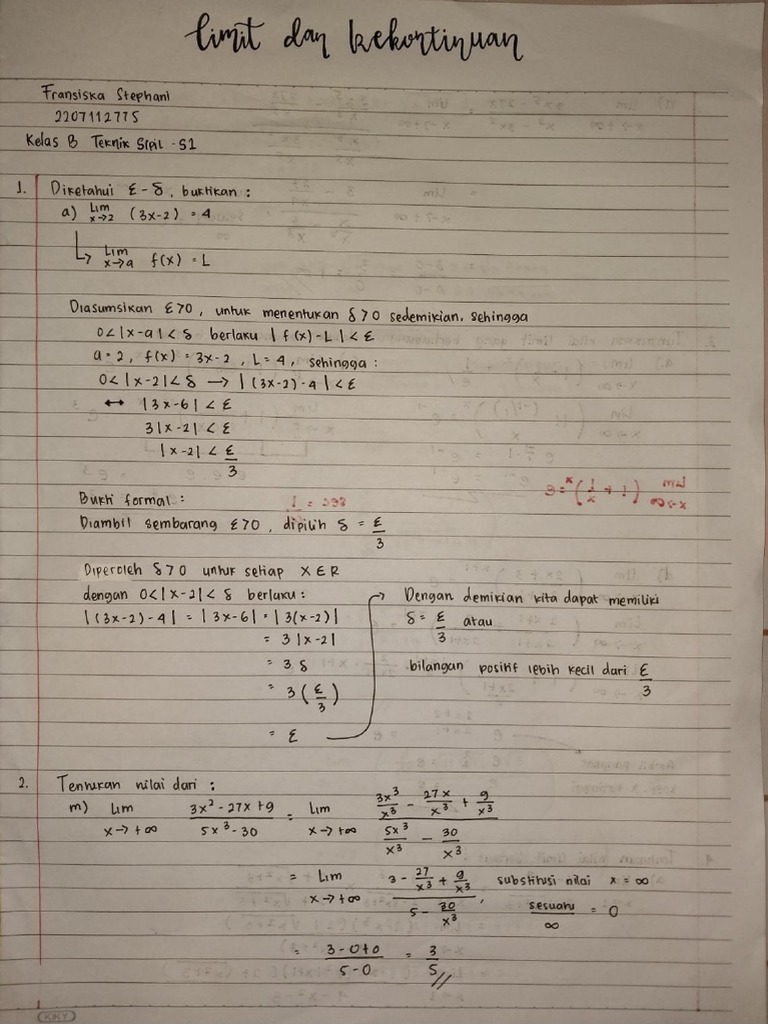 limit dan kekontinuan
Fransiska Stephani
2207112775
Kelas B Teknik Sipil -S1
1. Diketahui ε-δ, buktikan :
a) Lim x→2 (3x-2) = 4
↳ Lim x→a f(x) = L
Diasumsikan ε>0, untuk menentukan δ>0 sedemikian, sehingga
0<|x-a|<δ berlaku |f(x)-L|<ε
a=2, f(x) = 3x-2, L=4, sehingga :
0<|x-2|<δ → |(3x-2)-4|<ε
↔ |3x-6|<ε
3|x-2|<ε
|x-2|<ε/3
Bukti formal :
Diambil sembarang ε>0, dipilih δ = ε/3
Diperoleh δ>0 untuk setiap x∈R
dengan 0<|x-2|<δ berlaku :
|(3x-2)-4| = |3x-6| = |3(x-2)|
= 3|x-2|
= 3δ
= 3(ε/3)
= ε
Dengan demikian kita dapat memiliki
δ = ε/3 atau
bilangan positif lebih kecil dari ε/3
2. Tentukan nilai dari :
m) Lim x→+∞ (3x²-27x+9)/(5x³-30) = Lim x→+∞ (3x³/x³ - 27x/x³ + 9/x³)/(5x³/x³ - 30/x³)
= Lim x→+∞ (3 - 27/x³ + 9/x³)/(5 - 30/x³), substitusi nilai x = ∞
sesuatu/∞ = 0
= (3-0+0)/(5-0) = 3/5 //
KIKY